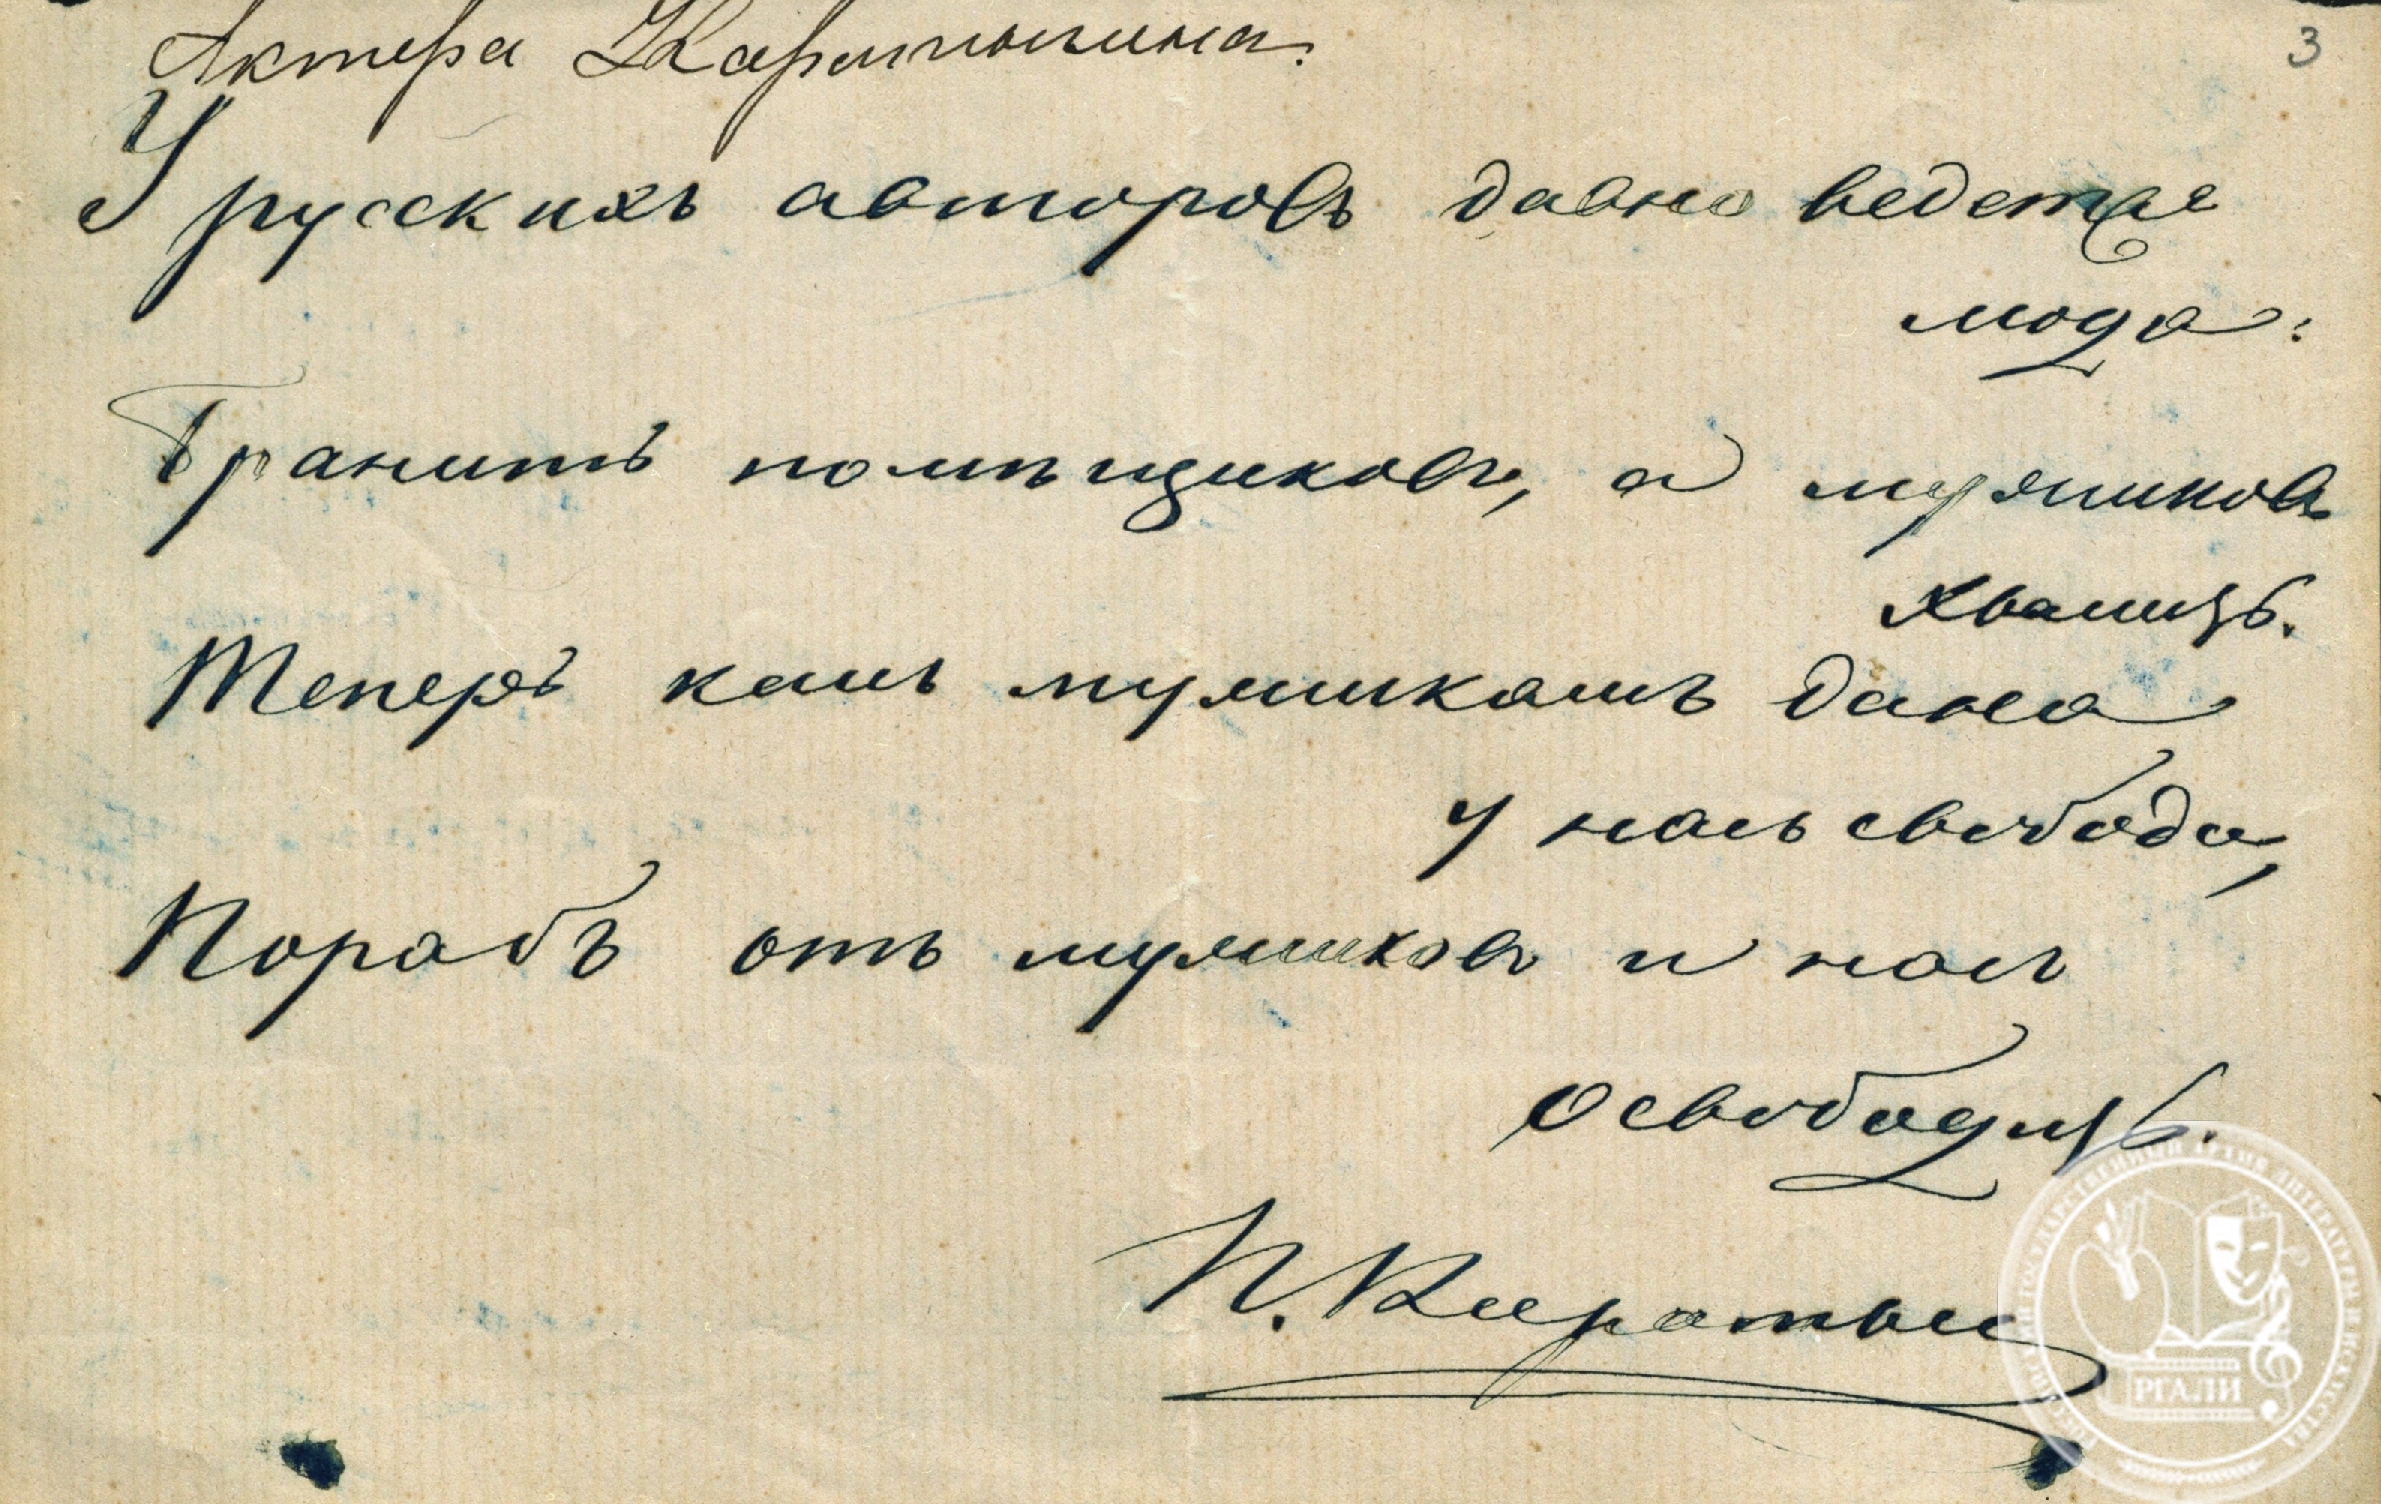 Актера Каратыгина.
3
У русскихъ авторовъ давно ведется
мода:
Бранить помѣщиковъ, а мужиковъ
хвалить.
Теперь какъ мужикамъ дана
у насъ свобода,
Порабъ отъ мужиковъ и насъ
освободить.
П. Каратыг
РГАЛИ